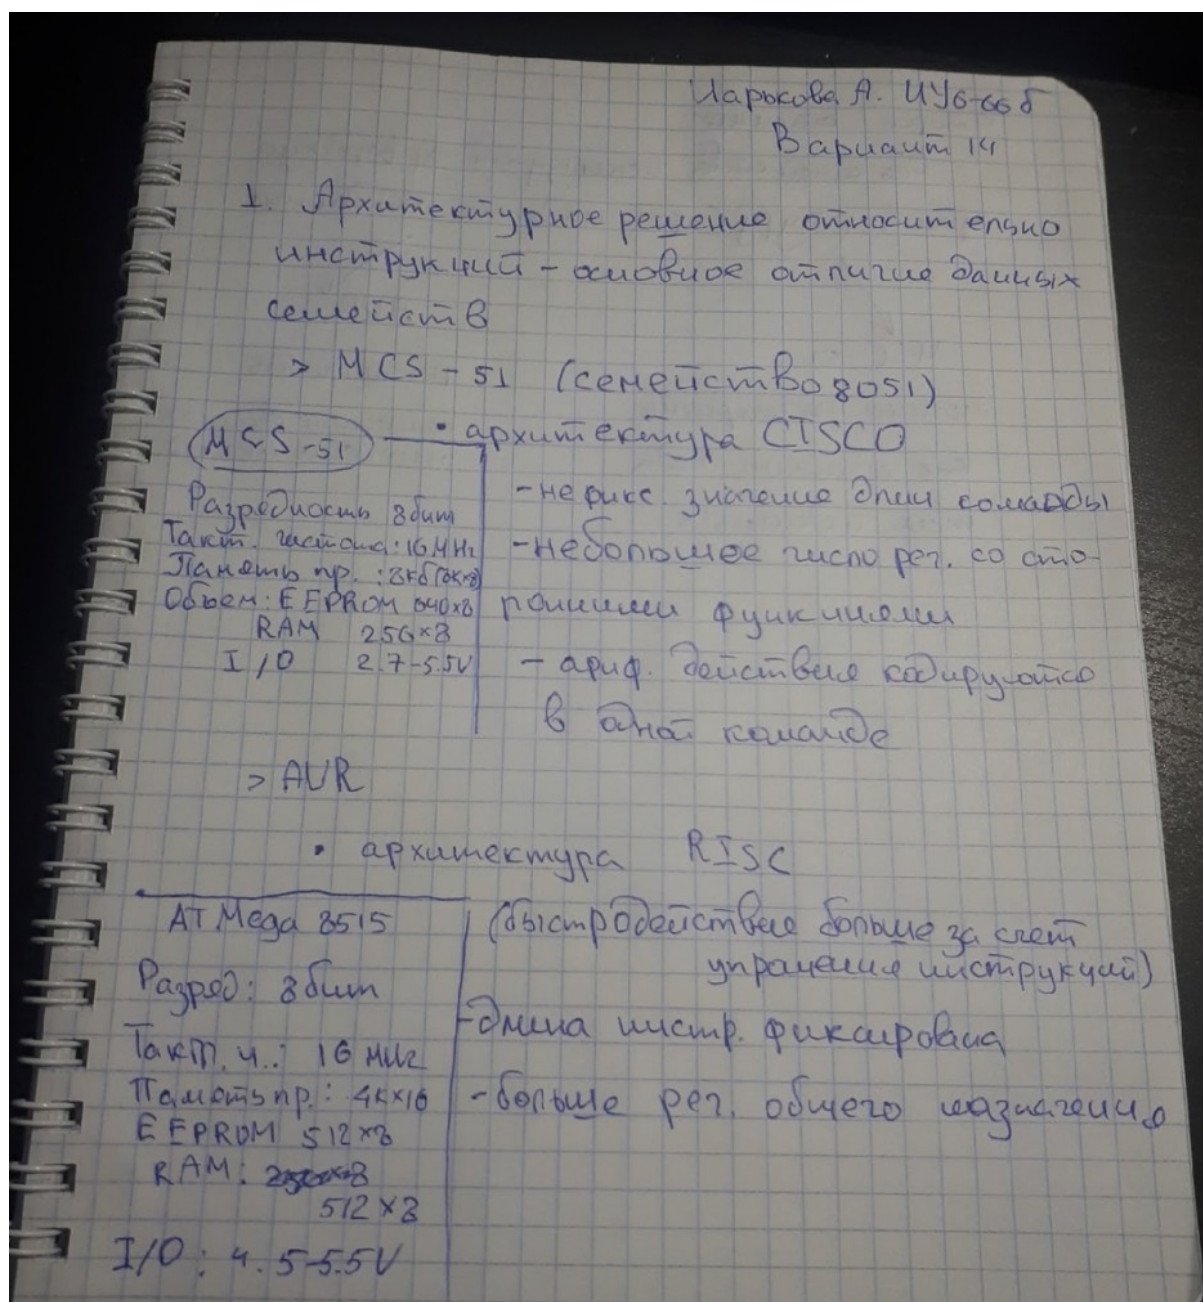 Царькова А. ИУ6-66б
Вариант 14
1. Архитектурное решение относительно
инструкций - основное отличие данных
семейств
> MCS-51 (семейство 8051)
MCS-51
• архитектура CISCO
Разрядность 8 бит
Такт. частота: 16 MHz
Память пр.: 8кб (8K×8)
Объем: EEPROM 640×8
RAM 256×8
I/O 2.7-5.5V
- не фикс значение длин команды
- небольшое число рег. со сто-
ронними функциями
- ариф. действия кодируются
в одной команде
> AVR
• архитектура RISC
ATMega 8515
Разряд: 8 бит
Такт. ч.: 16 мгц
Память пр.: 4K×16
EEPROM 512×8
RAM:
512×8
I/O: 4.5-5.5V
(быстродействие больше за счет
упращения инструкций)
- длина инстр. фиксирована
- больше рег. общего назначения